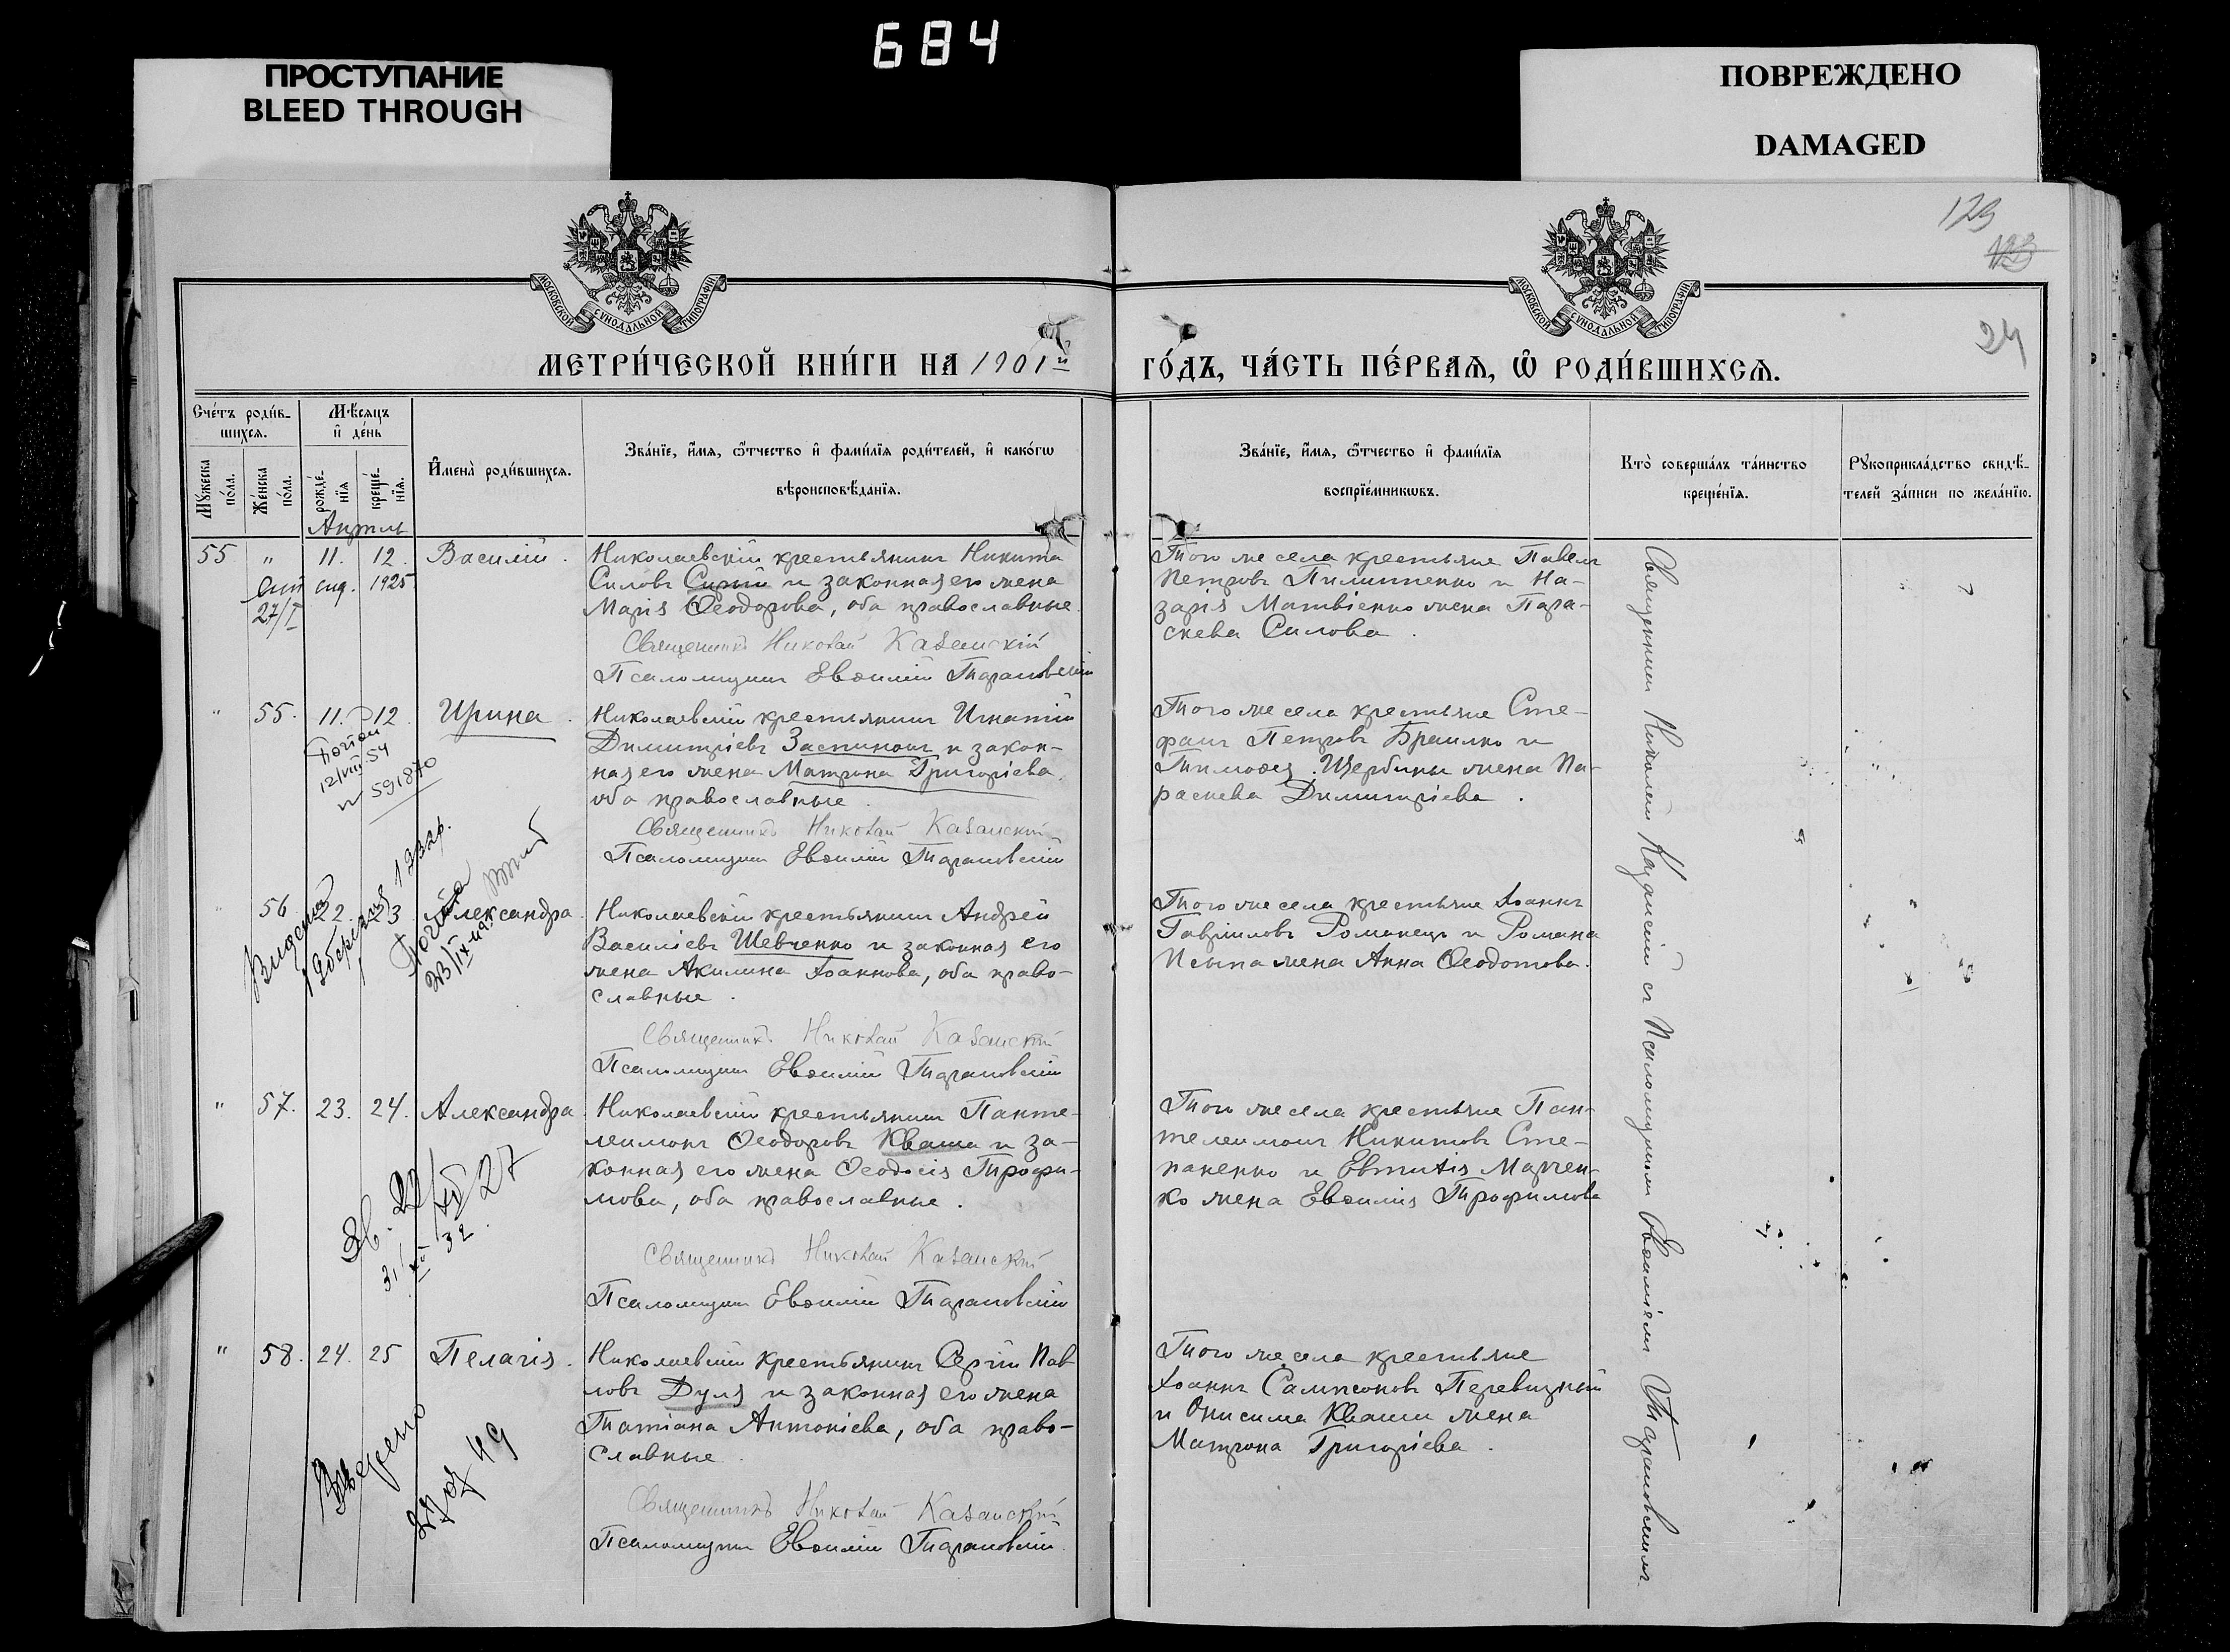 684
ПРОСТУПАНИЕ
BLEED THROUGH
ПОВРЕЖДЕНО
DAMAGED
МОСКОВСКОЙ СУНОДАЛЬНОЙ ТИПОГРАФІИ
МОСКОВСКОЙ СУНОДАЛЬНОЙ ТИПОГРАФІИ
129
123
24
МЕТРИ́ЧЕСКОЙ КНИ́ГИ НА 1901й
ГО́ДЪ, ЧА́СТЬ ПЕ́РВАѦ, Ѡ҆ РОДИ́ВШИХСѦ.
Сче́тъ роди́в-
шихсѧ.
Мꙋ́жеска по́ла.
Же́нска по́ла.
Мѣ́сѧцъ
и҆ де́нь
рожде́-
нїѧ
креще́-
нїѧ.
И҆мена̀ роди́вшихсѧ.
Зва́нїе, и҆́мѧ, ѻ҆́тчество и҆ фами́лїѧ роди́телей, и҆ како́гѡ
вѣроисповѣ́данїѧ.
Зва́нїе, и҆́мѧ, ѻ҆́тчество и҆ фами́лїѧ
воспрїе́мникѡвъ.
Кто̀ соверша́лъ та́инство
креще́нїѧ.
Рꙋкоприкла́дство свидѣ́-
телей за́писи по жела́нїю.
Апрѣль
55 " 11. 12. Василій.
27/I
1925
Николаевскій крестьянинъ Никита
Силовъ Сирый и законная его жена
Марія Ѳеодорова, оба православные
Священникъ Николай Казанскій
Псаломщикъ Евѳимій Тарановскій
Того же села крестьяне Павелъ
Петровъ Пилипенко и На-
зарія Матвіенко жена Пара-
скева Силова.
" 55. 11. 12. Ирина.
12/VIII 54
№ 591870
Николаевскій крестьянинъ Игнатій
Димитріевъ Заспинокъ и закон-
ная его жена Матрона Григоріева,
оба православные.
Священникъ Николай Казанскій
Псаломщикъ Евѳимій Тарановскій
Того же села крестьяне Сте-
фанъ Петровъ Браилко и
Тимоѳея Щербины жена Па-
раскева Димитріева.
" 56 22. 23 Александра.
Николаевскій крестьянинъ Андрей
Василіевъ Шевченко и законная его
жена Акилина Іоаннова, оба право-
славные.
Священникъ Николай Казанскій
Псаломщикъ Евѳимій Тарановскій
Того же села крестьяне Іоаннъ
Гавріиловъ Романецъ и Романа
Псыпа жена Анна Ѳеодотова.
" 57. 23. 24. Александра.
Николаевскій крестьянинъ Панте-
леимонъ Ѳеодоровъ Кваша и за-
конная его жена Ѳеодосія Трофи-
мова, оба православные.
Священникъ Николай Казанскій
Псаломщикъ Евѳимій Тарановскій
Того же села крестьяне Пан-
телеимонъ Никитовъ Сте-
паненко и Евтихія Марчен-
ко жена Евѳимія Трофимова
" 58. 24. 25 Пелагія.
Николаевскій крестьянинъ Сергій Пав-
ловъ Дуля и законная его жена
Татіана Антоніева, оба право-
славные.
Священникъ Николай Казанскій
Псаломщикъ Евѳимій Тарановскій
Того же села крестьяне
Іоаннъ Сампсоновъ Перевизный
и Онисима Кваши жена
Матрона Григоріева.
Священникъ Николай Казанскій съ Псаломщикомъ Евѳиміемъ Тарановскимъ.